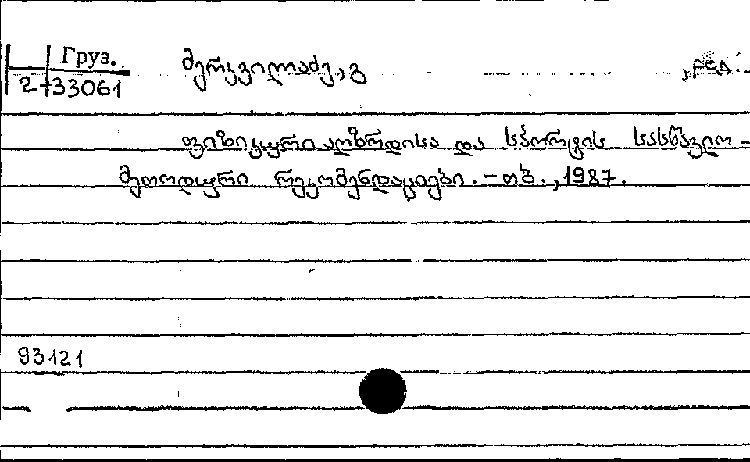 Груз.
2-33061
მერკვილაძე, გ ,ред.
ფიზიკური აღზრდისა და სპორტის სასწავლო-
მეთოდური რეკომენდაციები. – თბ., 1987.
93121